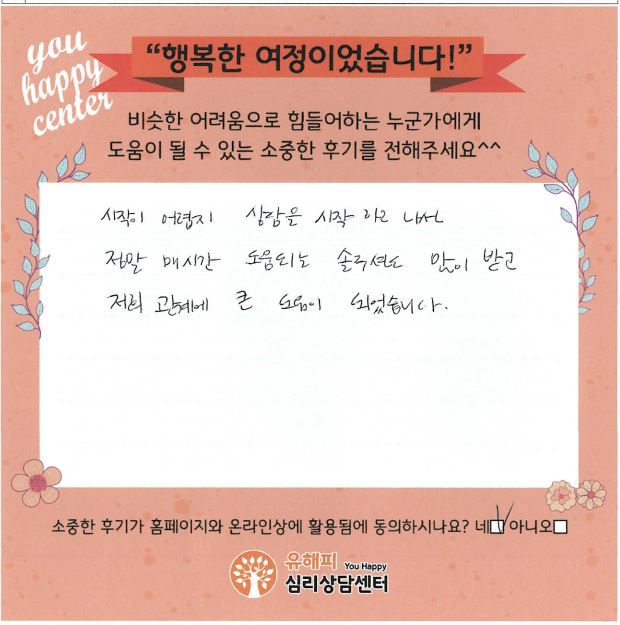 you
happy
center
“행복한 여정이었습니다!”
비슷한 어려움으로 힘들어하는 누군가에게
도움이 될 수 있는 소중한 후기를 전해주세요^^
시작이 어렵지 상담을 시작 하고 나서
정말 매시간 도움되는 솔루션도 많이 받고
저희 관계에 큰 도움이 되었습니다.
소중한 후기가 홈페이지와 온라인상에 활용됨에 동의하시나요? 네☑ 아니오☐
유해피 You Happy
심리상담센터